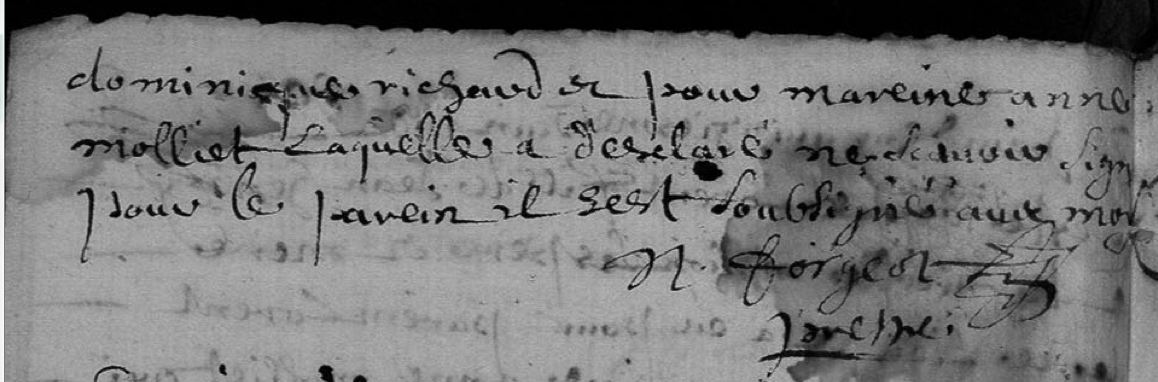 dominique richard et pour mareine anne
molliet Laquelle a desclaré ne scauoir sign
pour le parein il sest soubsigné auec moy
N. forgeot
prestre.